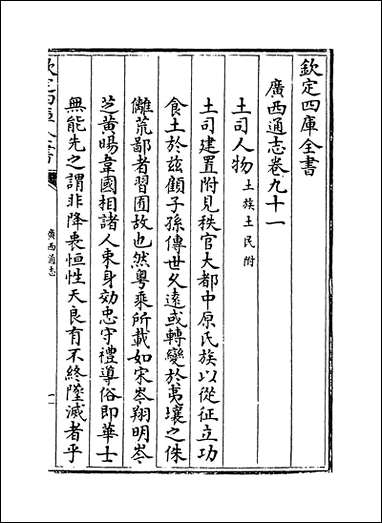 欽定四庫全書
廣西通志卷九十一
土司人物土族土民附
土司建置附見秩官大都中原氏族以從征立功
食土於兹顧子孫傳世乆遠或轉變於夷壤之侏
㒧荒鄙者習囿故也然粤乘所載如宋岑翔明岑
芝黄暘韋國相諸人束身効忠守禮導俗即華士
無能先之謂非降衷恒性天良有不終墜滅者乎
欽定四庫全書
廣西通志